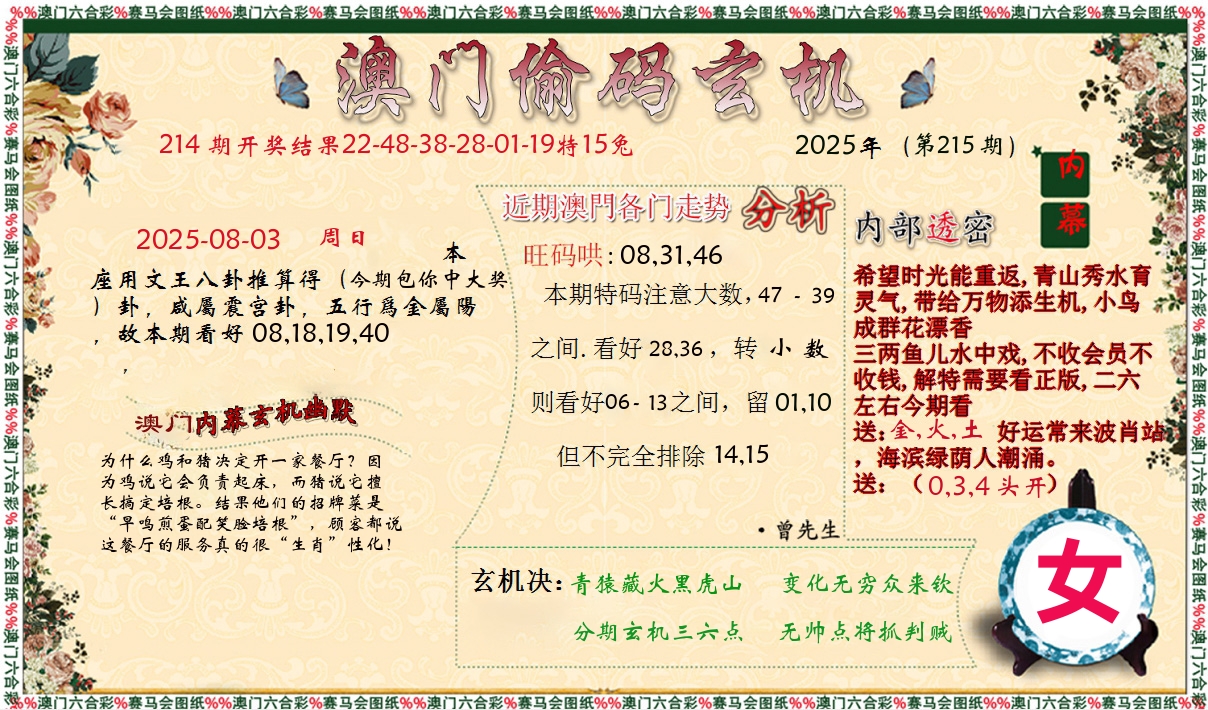 %%澳门六合彩%赛马会图纸%%澳门六合彩%赛马会图纸%%澳门六合彩%赛马会图纸%%澳门六合彩%赛马会图纸%%澳门六合彩%赛马会图纸%%澳门六合彩%赛马会图纸%%
澳门偷码玄机
214 期开奖结果22-48-38-28-01-19特15兔
2025年 (第215 期)
内幕
2025-08-03 周日
本
座用文王八卦推算得（今期包你中大奖
）卦，咸屬震宫卦，五行爲金屬陽
，故本期看好 08,18,19,40
，
澳门内幕玄机幽默
为什么鸡和猪决定开一家餐厅？因
为鸡说它会负责起床，而猪说它擅
长搞定培根。结果他们的招牌菜是
“早鸣煎蛋配笑脸培根”，顾客都说
这餐厅的服务真的很“生肖”性化！
近期澳門各门走势 分析
旺码哄: 08,31,46
本期特码注意大数, 47 - 39
之间. 看好 28,36， 转 小 数
则看好06- 13之间， 留 01,10
但不完全排除 14,15
·曾先生
内部透密
希望时光能重返, 青山秀水育
灵气, 带给万物添生机, 小鸟
成群花漂香
三两鱼儿水中戏, 不收会员不
收钱, 解特需要看正版, 二六
左右今期看
送: 金, 火, 土 好运常来波肖站
，海滨绿荫人潮涌。
送: （0,3,4 头开）
女
玄机决: 青猿藏火黑虎山 变化无穷众来钦
分期玄机三六点 无帅点将抓判贼
%%澳门六合彩%赛马会图纸%%澳门六合彩%赛马会图纸%%澳门六合彩%赛马会图纸%%澳门六合彩%赛马会图纸%%澳门六合彩%赛马会图纸%%澳门六合彩%赛马会图纸%%